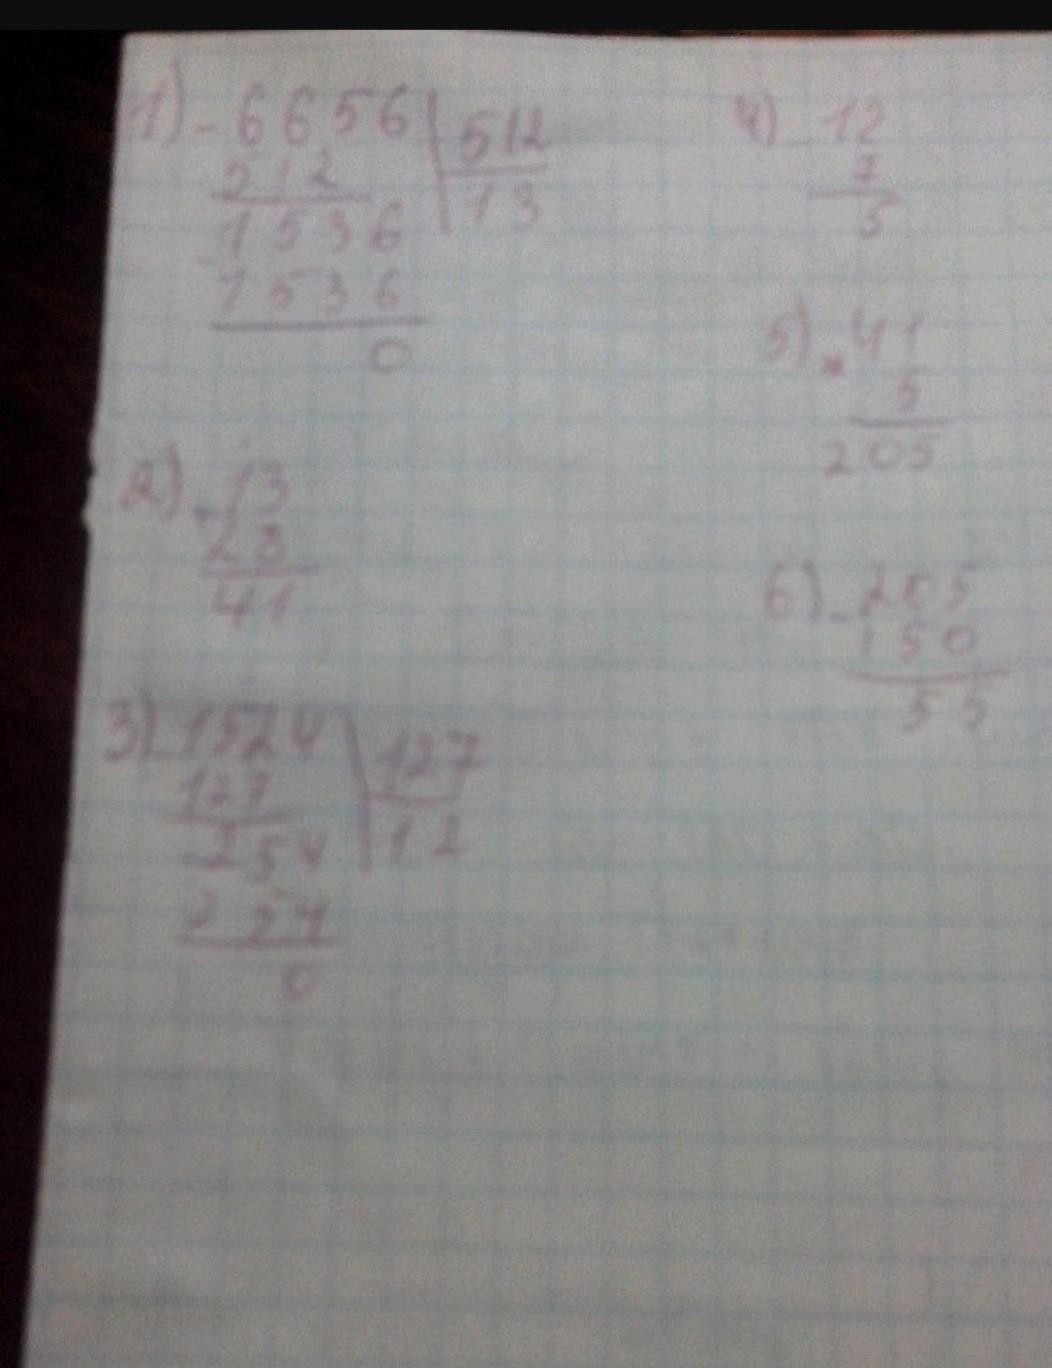 1) - 6656 | 512
512 | 13
- 1536
1536
0
2) + 13
28
41
3) - 1524 | 127
127 | 12
- 254
254
0
4) - 12
7
5
5) × 41
5
205
6) - 205
150
55